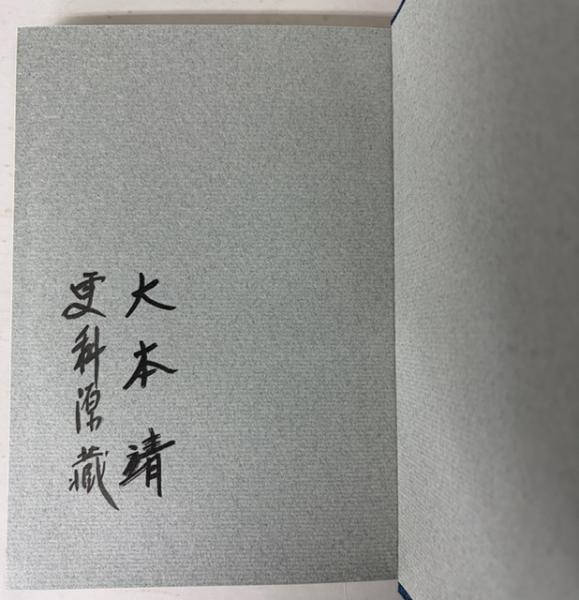 大本靖
更科源藏